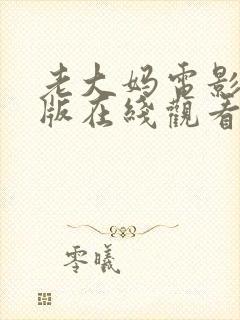 老大妈电影
版在线觀看
零曦